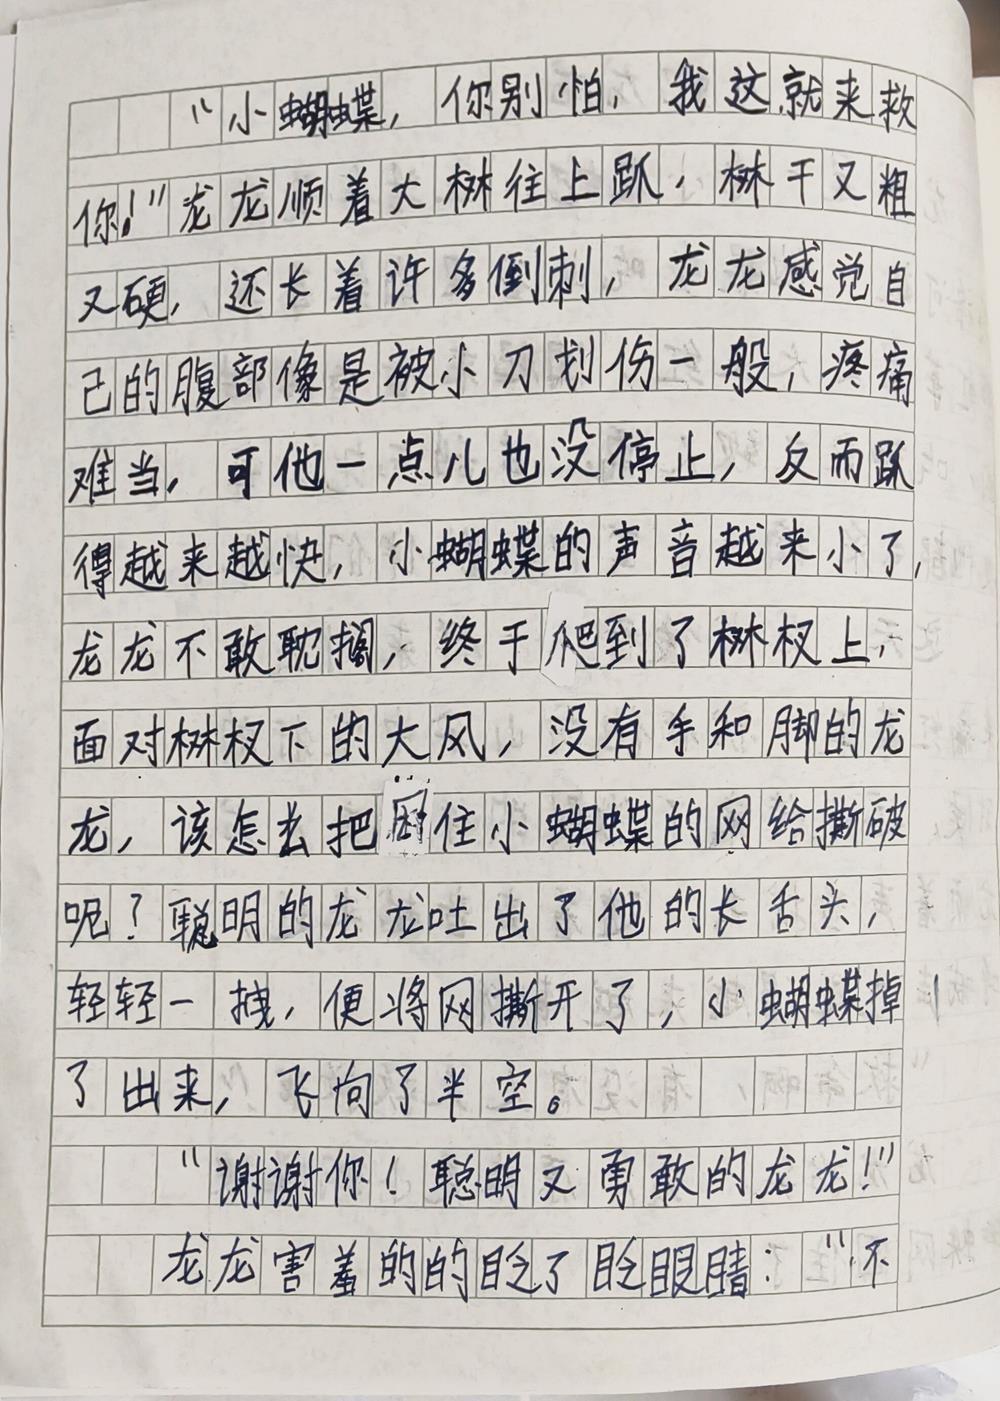 “小蝴蝶，你别怕，我这就来救
你！”龙龙顺着大树往上趴，树干又粗
又硬，还长着许多倒刺，龙龙感觉自
己的腹部像是被小刀划伤一般，疼痛
难当，可他一点儿也没停止，反而趴
得越来越快，小蝴蝶的声音越来小了，
龙龙不敢耽搁，终于爬到了树杈上，
面对树杈下的大风，没有手和脚的龙
龙，该怎么去把困住小蝴蝶的网给撕破
呢？聪明的龙龙吐出了他的长舌头，
轻轻一拽，便将网撕开了，小蝴蝶掉
了出来，飞向了半空。
“谢谢你！聪明又勇敢的龙龙！”
龙龙害羞的的眨了眨眼睛：“不